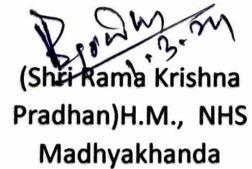 (Shri Rama Krishna
Pradhan)H.M., NHS
Madhyakhanda